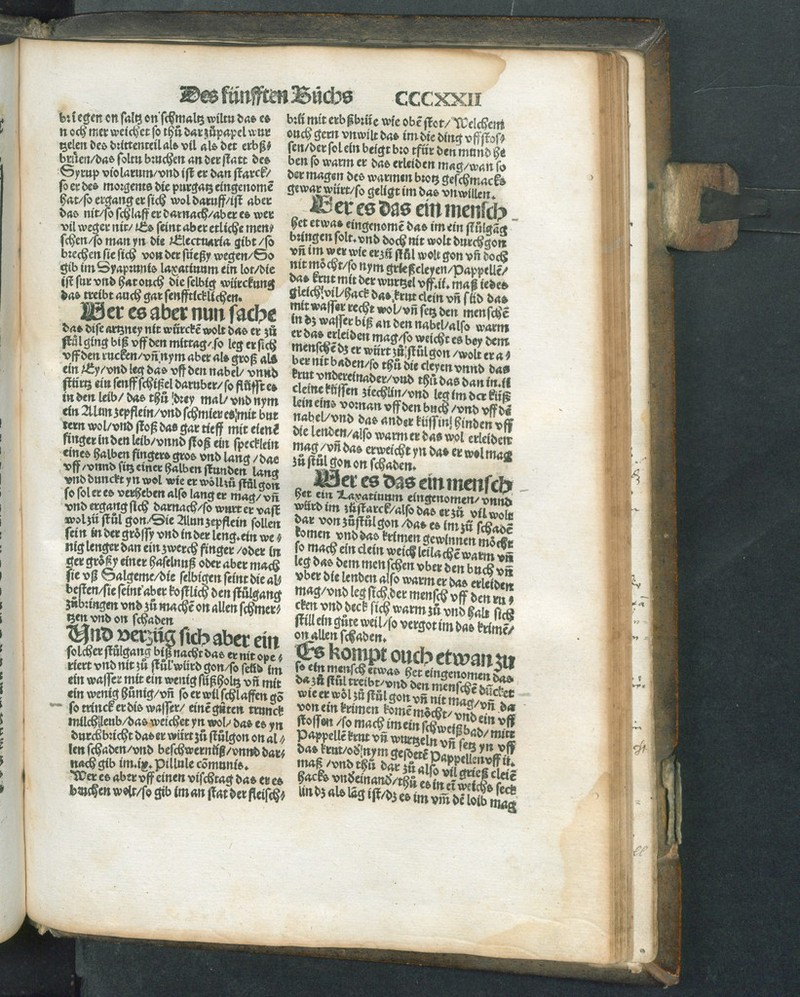 Des fünfften Bůchs CCCXXII
briegen on saltz on schmaltz wiltu das es
noch mer weichet so thů dar zů papel wur
tzelen des drittenteil als vil als det erbß⸗
brüen/das soltu bruchen an der statt des
Syrup violarum/vnd ist er dan starck/
so er des morgens die purgatz eingenomē
hat/so ergang er sich wol daruff/ist aber
das nit/so schlaff er darnach/aber es wer
vil weger nit/Es seint aber etliche men⸗
schen/so man yn die Electuaria gibt/so
brechen sie sich von der süeßy wegen/So
gib im Syaprunis laxatiuum ein lot/die
ist sur vnd hat ouch die selbig würckung
das treibt auch gar senfftlicklichen.
Wer es aber nun sache
das dise artzney nit würckē wolt das er zů
stůl ging biß vff den mittag/so leg er sich
vff den rucken/vñ nym aber als groß als
ein Ey/vnd leg das vff den nabel/vnnd
stürtz ein senff schißel daruber/so flüßt es
in den leib/das thů drey mal/vnd nym
ein Alun zepflein/vnd schmier es mit but
tern wol/vnd stoß das gar tieff mit einē
finger in den leib/vnnd stoß ein specklein
eines halben fingers gros vnd lang/das
vff/vnnd sitz einer halben stunden lang
vnd dunckt yn wol wie er wöll zů stůl gon
so sol er es verheben also lang er mag/vñ
vnd ergang sich darnach/so wurt er vast
wol zů stůl gon/Die Alun zepflein sollen
sein in der grössy vnd in der leng.ein we⸗
nig lenger dan ein zwerch finger/oder in
ger größy einer haselnuß oder aber mach
sie vß Salgeme/die selbigen seint die al⸗
besten/sie seint aber kostlich den stůlgang
zůbringen vnd zů machē on allen schmer⸗
tzen vnd on schaden
Vnd verzüg sich aber ein
solcher stůlgang biß nacht das er nit ope⸗
riert vnd nit zů stůl würd gon/so seüd im
ein wasser mit ein wenig süßholtz vñ mit
ein wenig hünig/vñ so er wil schlaffen gō
so trinck er dis wasser/einē gůten trunck
milch leub/das weichet yn wol/das es yn
durchbricht das er würt zů stůlgon on al⸗
len schaden/vnd beschwernüß/vnnd dar⸗
nach gib im.ix. Pillule cōmunis.
Wer es aber vff einen vischtag das er es
bruchen wolt/so gib im an stat der fleisch⸗
brü mit erbßbrüe wie obē stot/Welchem
ouch gern vnwilt das im die ding vffstos⸗
sen/der sol ein beigt brot für den mund he
ben so warm er das erleiden mag/wan so
der magen des warmen brotz geschmacks
gewar würt/so geligt im das vnwillen.
Wer es das ein mensch
het etwas eingenomē das im ein stůlgāg
bringen solt.vnd doch nit wolt durchgon
vñ im wer wie er zů stůl wolt gon vñ doch
nit möcht/so nym grießcleyen/Pappellē/
das krut mit der wurtzel vff.ii. maß iedes
gleich vil/hack das krut clein vñ süd das
mit wasser recht wol/vñ setz den menschē
in dz wasser biß an den nabel/also warm
er das erleiden mag/so weicht es bey dem
menschē dz er würt zů stůl gon/wolt er a⸗
ber nit baden/so thů die cleyen vnnd das
krut vndereinader/vnd thů das dan in.ii
cleine küssen ziechlin/vnd leg im der küß
lein eins vornan vff den buch/vnd vff dē
nabel/vnd das ander küssin hinden vff
die lenden/also warm er das wol erleiden
mag/vñ das erweicht yn das er wol mag
zů stůl gon on schaden.
Wer es das ein mensch
het ein Laxatiuum eingenomen/vnnd
würd im zůstarck/also das er zů vil wolt
dar von zůstůlgon/das es im zů schadē
komen vnd das krimen gewinnen möcht
so mach ein clein weich leilachē warm vñ
leg das dem menschen vber den buch vñ
vber die lenden also warm er das erleiden
mag/vnd leg sich der mensch vff den ru⸗
cken vnd deck sich warm zů vnd halt sich
still ein gůte weil/so vergot im das krimē/
on allen schaden.
Es kompt ouch etwan zu
so ein mensch etwas het eingenomen das
da zů stůl treibt/vnd den menschē dücket
wie er wöl zů stůl gon vñ nit mag/vñ da
von ein krimen komē möcht/vnd ein vff
stossen/so mach im ein schweißbad/mitt
Pappellē krut vñ wurtzeln vñ setz yn vff
das krut/od nym gesoetē Pappellen vff ii.
maß/vnd thů dar zů also vil grieß cleiē
hacks vndeinand/thů es in ei weichs seck
lin dz als lāg ist/dz es im vm̄ dē loib mag